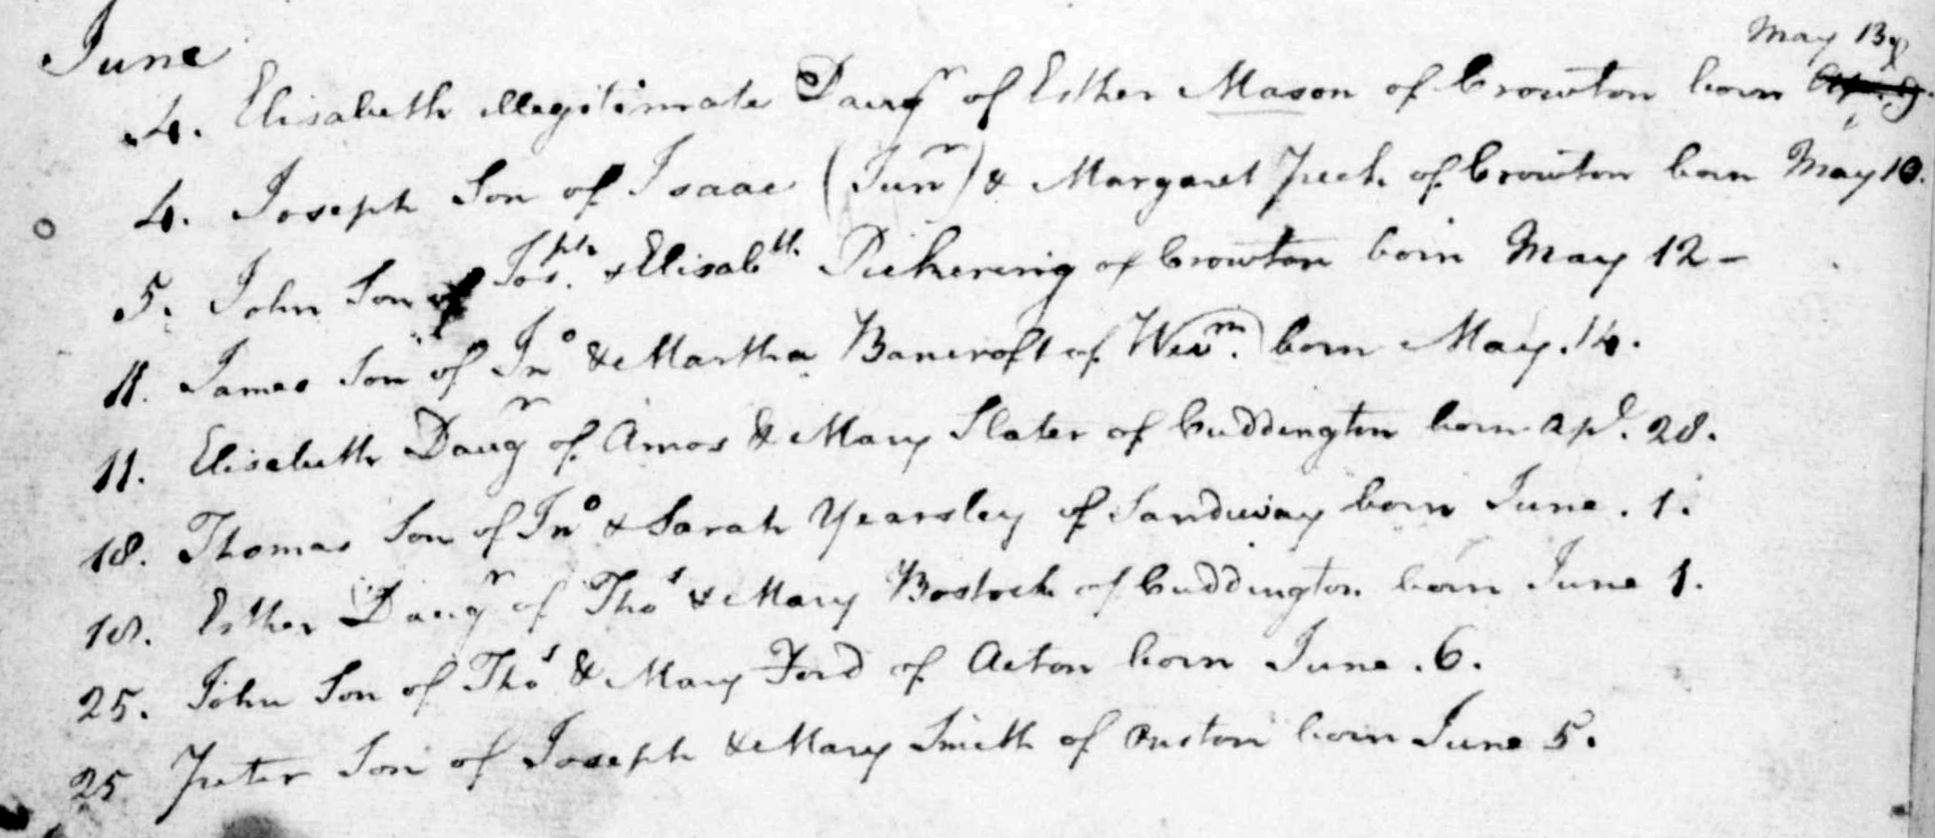 June
May 13
4. Elisabeth illegitimate Daugr of Esther Mason of Crowton born
4. Joseph Son of Isaac (Junr) & Margaret Peck of Crowton born May 10.
5. John Son of Josph. & Elisabth Pickering of Crowton born May 12 -
11. James Son of Jno & Martha Bancroft of Wevm. born May. 14.
11. Elisabeth Daugr of Amos & Mary Slater of Cuddington born apl. 28.
18. Thomas Son of Jno & Sarah Yearsley of Sandiway born June. 1.
18. Esther Daugr of Thos & Mary Bostock of Cuddington born June 1.
25. John Son of Thos & Mary Ford of Acton born June. 6.
25 Peter Son of Joseph & Mary Smith of Onston born June 5.